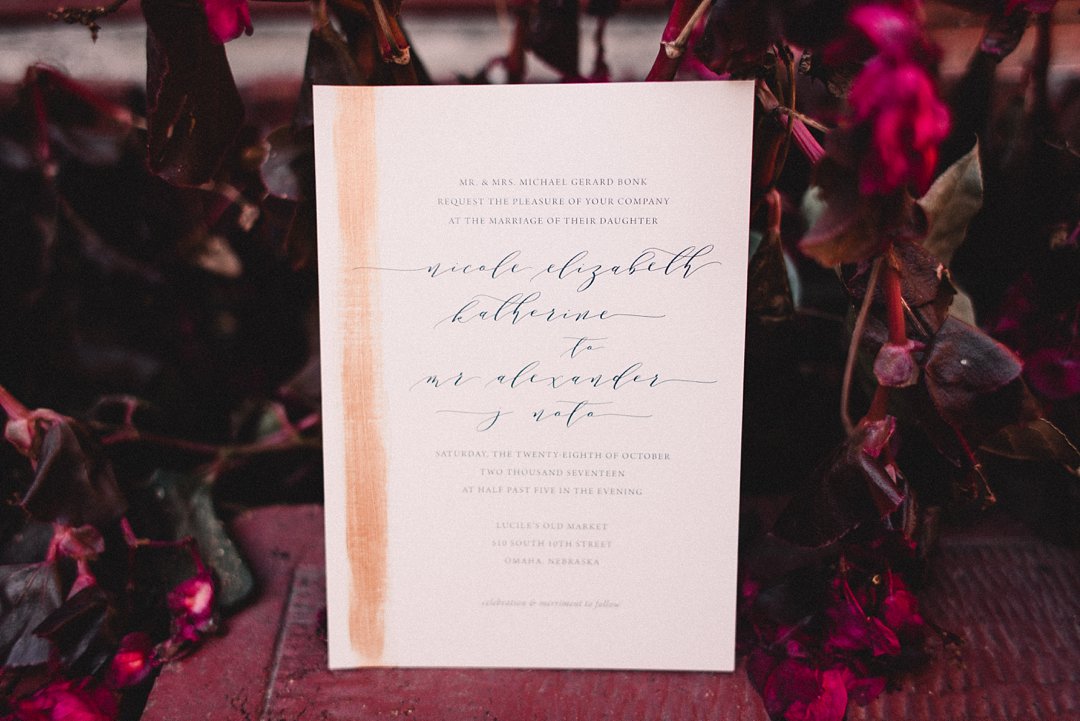 MR. & MRS. MICHAEL GERARD BONK
REQUEST THE PLEASURE OF YOUR COMPANY
AT THE MARRIAGE OF THEIR DAUGHTER
nicole elizabeth
katherine
to
mr alexander
j noto
SATURDAY, THE TWENTY-EIGHTH OF OCTOBER
TWO THOUSAND SEVENTEEN
AT HALF PAST FIVE IN THE EVENING
LUCILE'S OLD MARKET
510 SOUTH 10TH STREET
OMAHA, NEBRASKA
celebration & merriment to follow